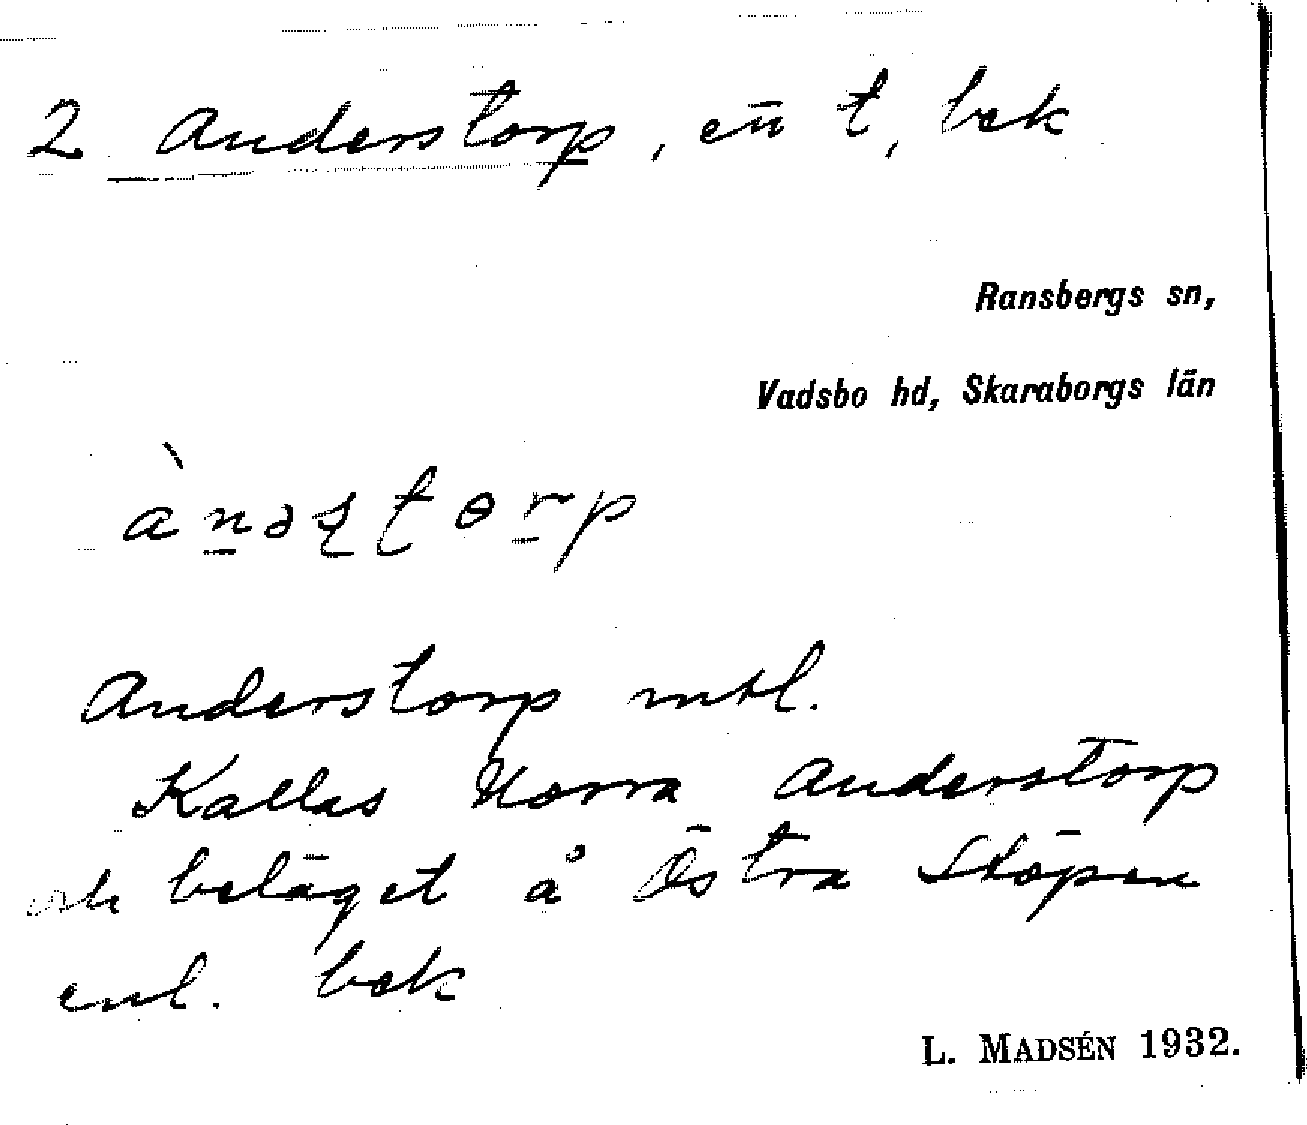 2 Anderstorp, eü t, bek
Ransbergs sn,
Vadsbo hd, Skaraborgs län
Anderstorp mtl.
Kallas Norra Anderstorp
och beläget å Östra Stöpen
enl. bek
L. MADSÉN 1932.